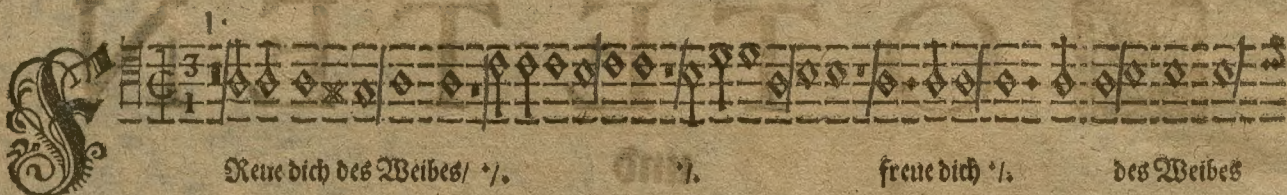 1.
3
1
FReue dich des Weibes/ ·/. ·/. freue dich ·/. des Weibes